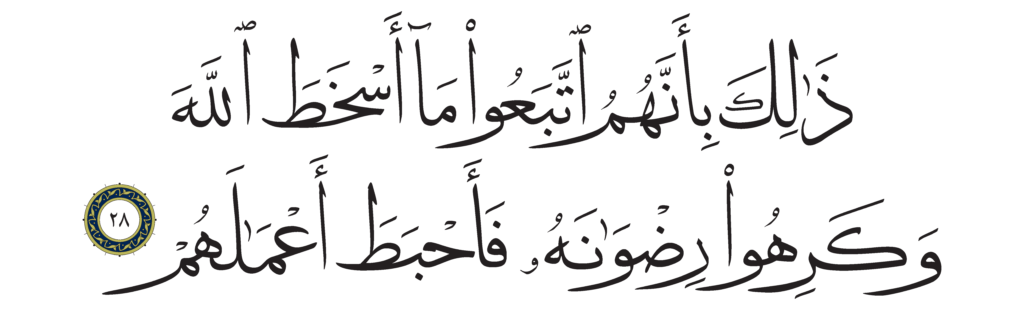 ذَٰلِكَ بِأَنَّهُمُ ٱتَّبَعُوا۟ مَآ أَسْخَطَ ٱللَّهَ
وَكَرِهُوا۟ رِضْوَٰنَهُۥ فَأَحْبَطَ أَعْمَـٰلَهُمْ ٢٨